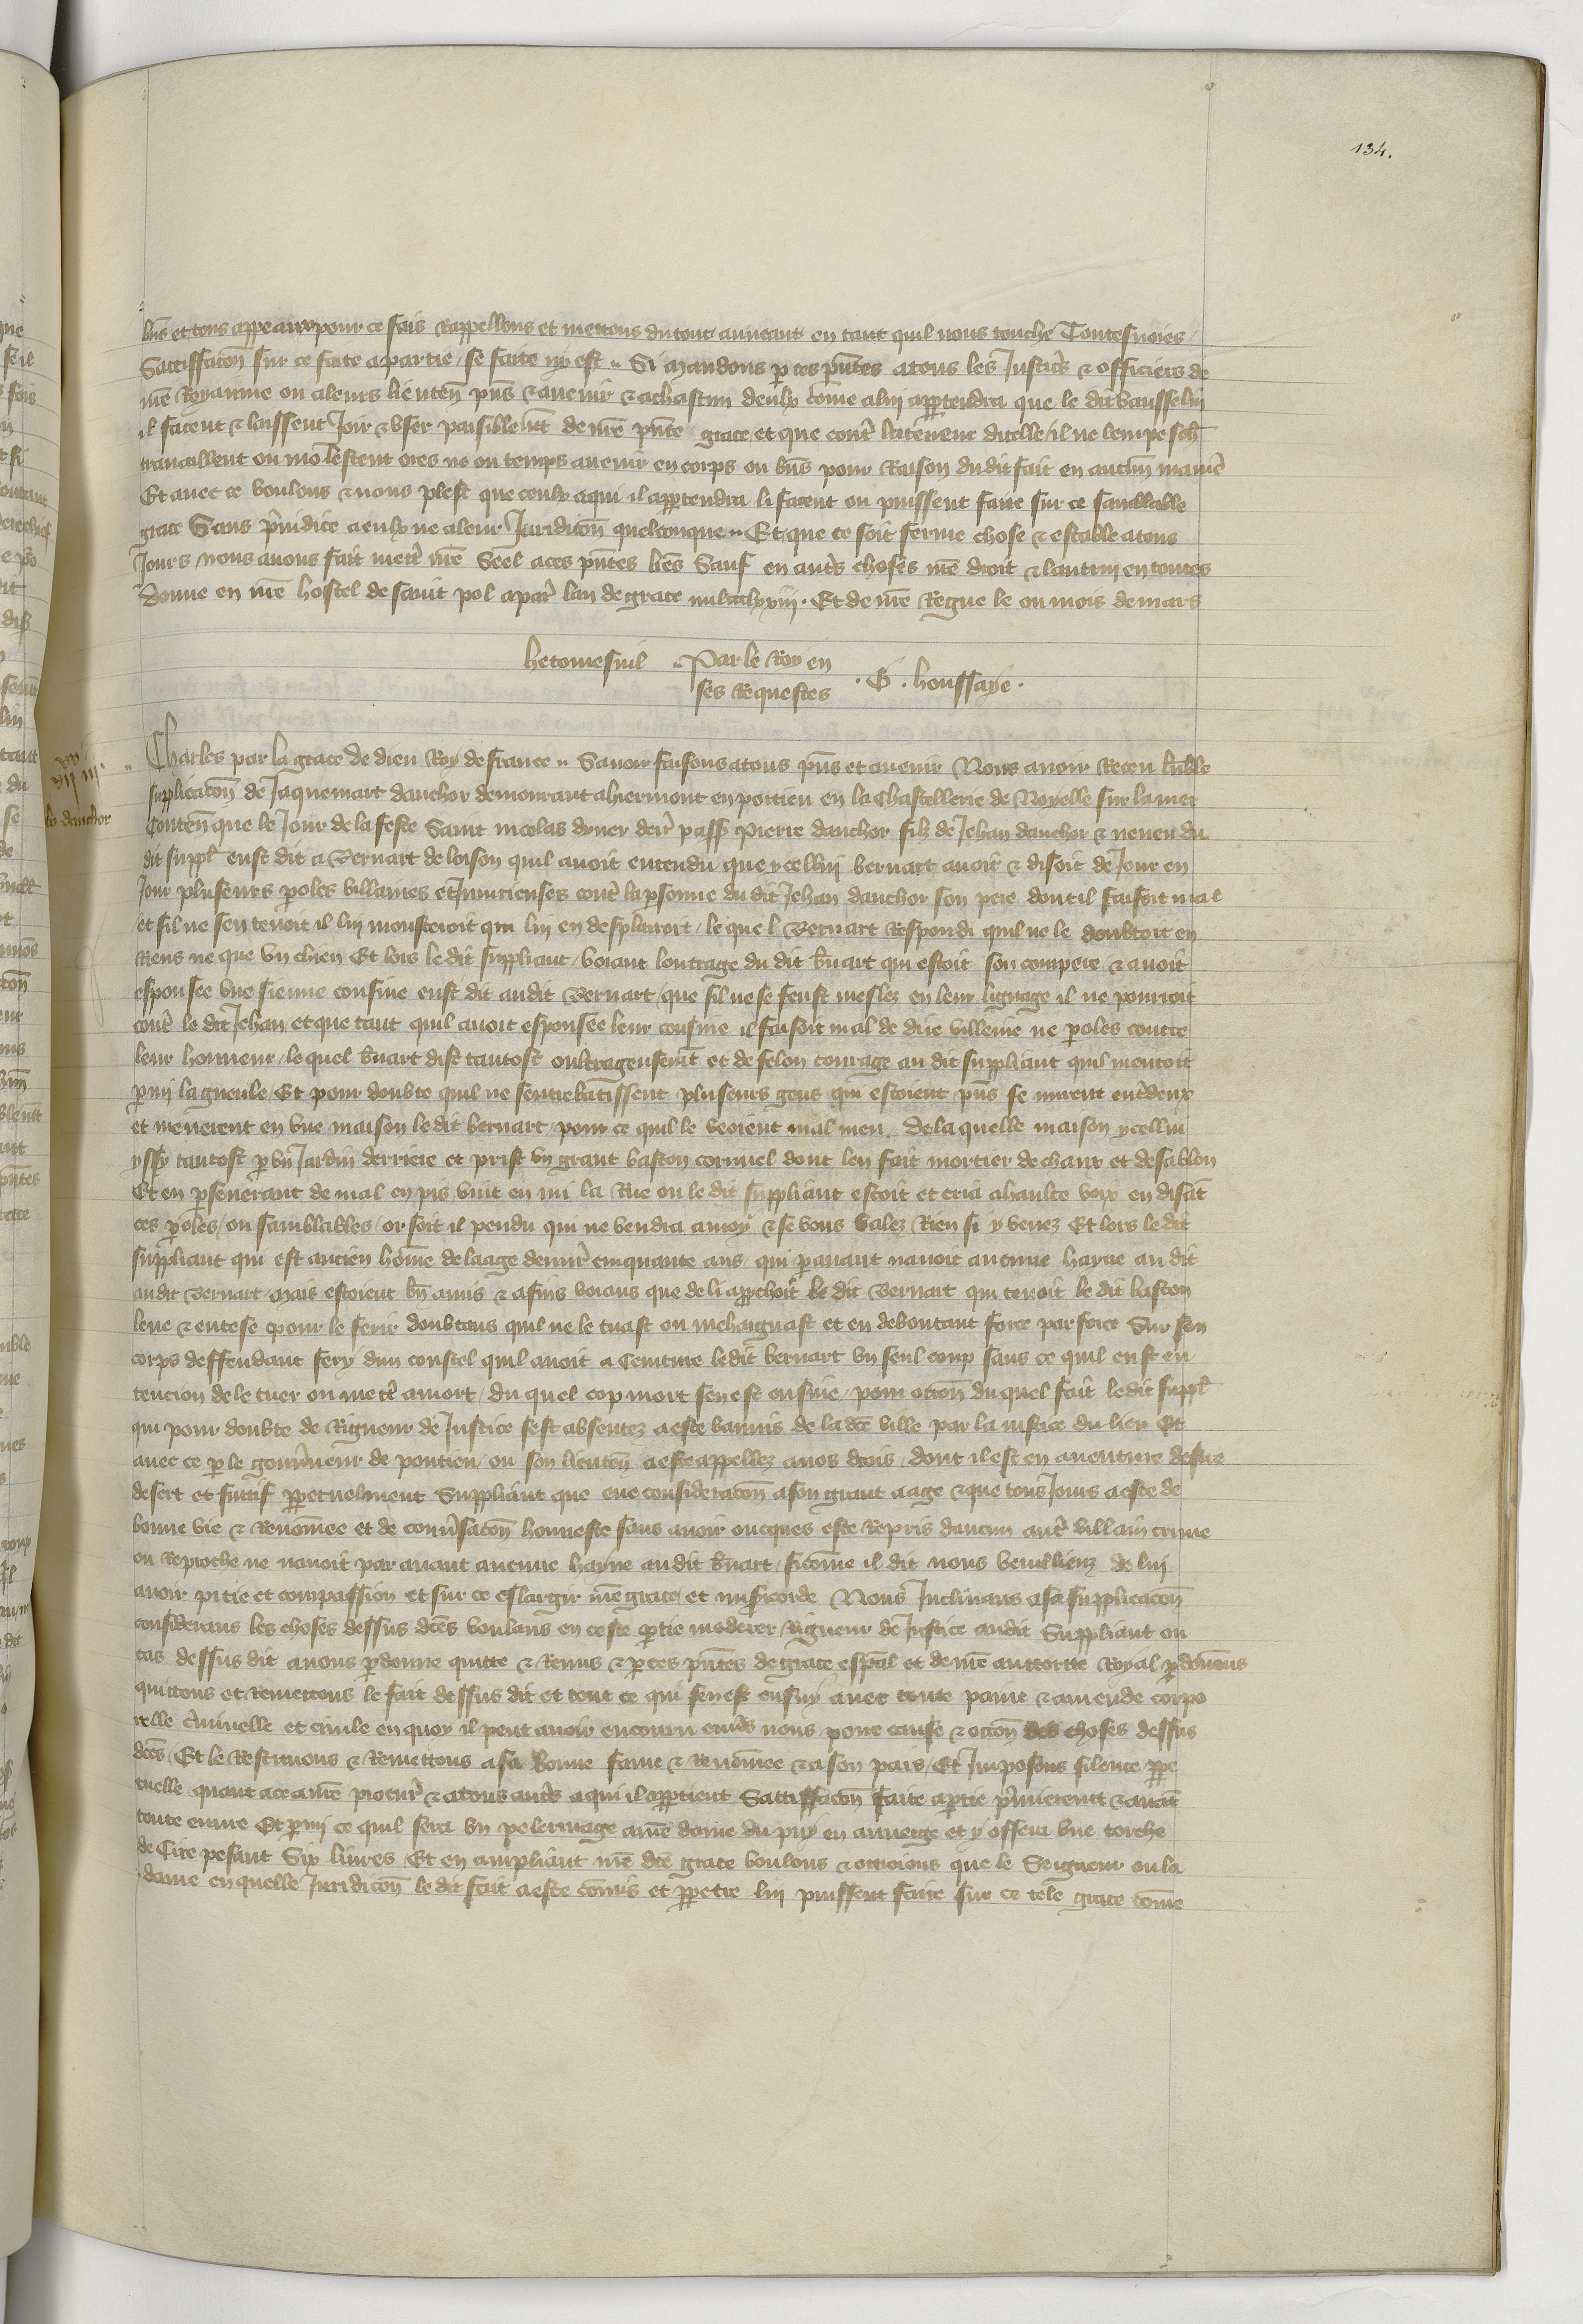 134.
bñs et tous appeaux pour ce fais Rappellons et mettons du tout au neant en tant quil nous touche Toutesuoies /
Satiffacoñ sur ce faite a partie / se faite ny est .. Si mandons ꝑ ces pñtes a tous les Justicˢ & officiers de
nr̃e Royaume ou a leurs lieuteñ pñs & auenir & a chascun deulx cõme a lui appartendra que le dit
il facent & laissent Joir & vser paisiblemt̃ de nr̃e pñte grace / et que contr̃ la teneur dicelle / il ne lempesch̃
trauaillent ou molestent ores ne ou temps auenir en corps ou bñs pour Raison du dit fait en aucũn manie͂
Et auec ce voulons & nous plest que ceulx a qui il appartendra li facent ou puissent faire sur ce samblable
grace Sans pr̃iudice a eulx ne a leur Juridicoñ quelconque .. Et que ce soit ferme chose & estable a tous
Jours / nous auons fait mettr̃ nr̃e Seel a ces pñtes lr̃es Sauf en autrˢ choses nr̃e droit & lautrui en toutes
Donne en nr̃e hostel de saint pol a parˢ lan de grace mil ccclxxiij . Et de nr̃e Regne le ou mois de mars
hetomesnil .. Par le Roy en
ses Requestes . G . houssaye .
vijxx iij.
danchor
Charles par la grace de dieu Roy de france .. Sauoir faisons a tous pñs et auenir Nous auoir Receu lũble
supplicacoñ de Jaquemart danchor demourant a hiermont en pontieu en la Chastellerie de Noyelle sur la mer
Conteñ que le Jour de la feste Saint nicolas dyuer derr̃ pass̃ Pierre danchor filz de Jehan danchor & neueu du
dit suppl̃ eust dit a Bernart de loison quil auoit entendu que ycellui bernart auoit & disoit de Jour en
Jour pluseurs ꝑoles villaines et Iniurieuses contr̃ la ꝑsonne du dit Jehan danchor son pere dont il faisoit mal
et sil ne sen tenoit il lui monsteroit qui lui en desplairoit / le quel Bernart Respondi quil ne le doubtoit en
Riens ne que vn chien Et lors le dit suppliant / voiant loutrage du dit b̃nart qui estoit son compere / & auoit
espousee vne sienne cousine eust dit au dit Bernart / que sil ne se feust meslez en leur lignage il ne pourroit
contr̃ le dit Jehan / et que tant quil auoit espousee leur cousine il faisoit mal de dire villenie ne ꝑoles contre
leur honneur / le quel b̃nart dist tantost oultrageusemt̃ et de felon courage au dit suppliant quil mentoit
ꝑmi la gueule / Et pour doubte quil ne sentrebatissent pluseurs gens qui estoient pñs se mirent entr̃deux
et menerent en vne maison le dit bernart / pour ce quil le veoient mal meu . de la quelle maison ycellui
yssy tantost ꝑ vn Jardin derriere et prist vn grant baston cornuel dont len fait mortier de chaux et de sablon
Et en ꝑseuerant de mal en pis vint en mi la Rue ou le dit suppliant estoit et cria a haulte voix en disãt
ces ꝑoles / ou samblables / or soit il pendu qui ne vendra a moy & se vous valez Rien si y venez Et lors le dit
suppliant qui est ancien hom̃e de laage denuir̃ cinquante ans / qui ꝑauant nauoit aucune hayne au dit
au dit Bernart / Mais estoient bñ amis & afins voians que de li approchoit le dit Bernart qui tenoit le dit baston
leue & entese pour le ferir doubtans quil ne le tuast ou mehaignast et en deboutant force par force Sur son
corps deffendant fery dun coustel quil auoit a Ceinture le dit bernart vn seul coup sans ce quil eust en
tencion de le tuer ou mettr̃ a mort / du quel cop mort sen est ensuie / pour occoñ du quel fait le dit suppl̃
qui pour doubte de Rigueur de Justice sest absentez a este bannis de la dc̃e ville par la iustice du lieu Et
auec ce ꝑ le gouuerneur de pontieu / ou son lieuteñ a este appellez a nos drois / dont il est en auenture destre
desert et fuitif ꝑpetuelment Suppliant que eue consideracoñ a son grant aage & que tous Jours a este de
bonne vie & Renom̃ee et de conũsacoñ honneste sans auoir oncques este Repris daucun autr̃ villain crime
ou Reproche ne nauoit par auant aucune hayne au dit b̃nart / sicõme il dit nous veuillienz de lui
auoir pitie et compassion et sur ce eslargir nr̃e grace et mi͂sicorde Nous Inclinans a sa supplicacoñ
considerans les choses dessus dc̃es voulans en ceste ꝑtie moderer Rigueur de Justice au dit Suppliant ou
cas dessus dit auons ꝑdonne quitte & Remis & ꝑ ces pñtes de grace esp̃al et de nr̃e auttorite Royal ꝑdonnons
quittons et Remettons le fait dessus dit et tout ce qui sen est ensuy auec toute paine & amende corpo
relle crĩinelle et ciuile en quoy il peut auoir encouru enuers nous pour cause & occoñ des choses dessus
dc̃es / Et le Restituons & Remettons a sa bonne fame & Renom̃ee & a son pais / Et Imposons silence ꝑpe
tuelle quant a ce a nr̃e procur̃ & a tous autrˢ a qui il appartient Satiffacoñ faite a ꝑtie pr̃mierement & auãt
toute euure Et ꝑmi ce quil fera vn pelerinage a nr̃e dame du puy en auuergne et y offerra vne torche
de Cire pesant Six liures / Et en ampliant nr̃e dc̃e grace voulons & ottroions que le Seigneur ou la
dame en quelle Juridicoñ le dit fait a este cõmis et ꝑpetre lui puissent faire sur ce tele grace cõme